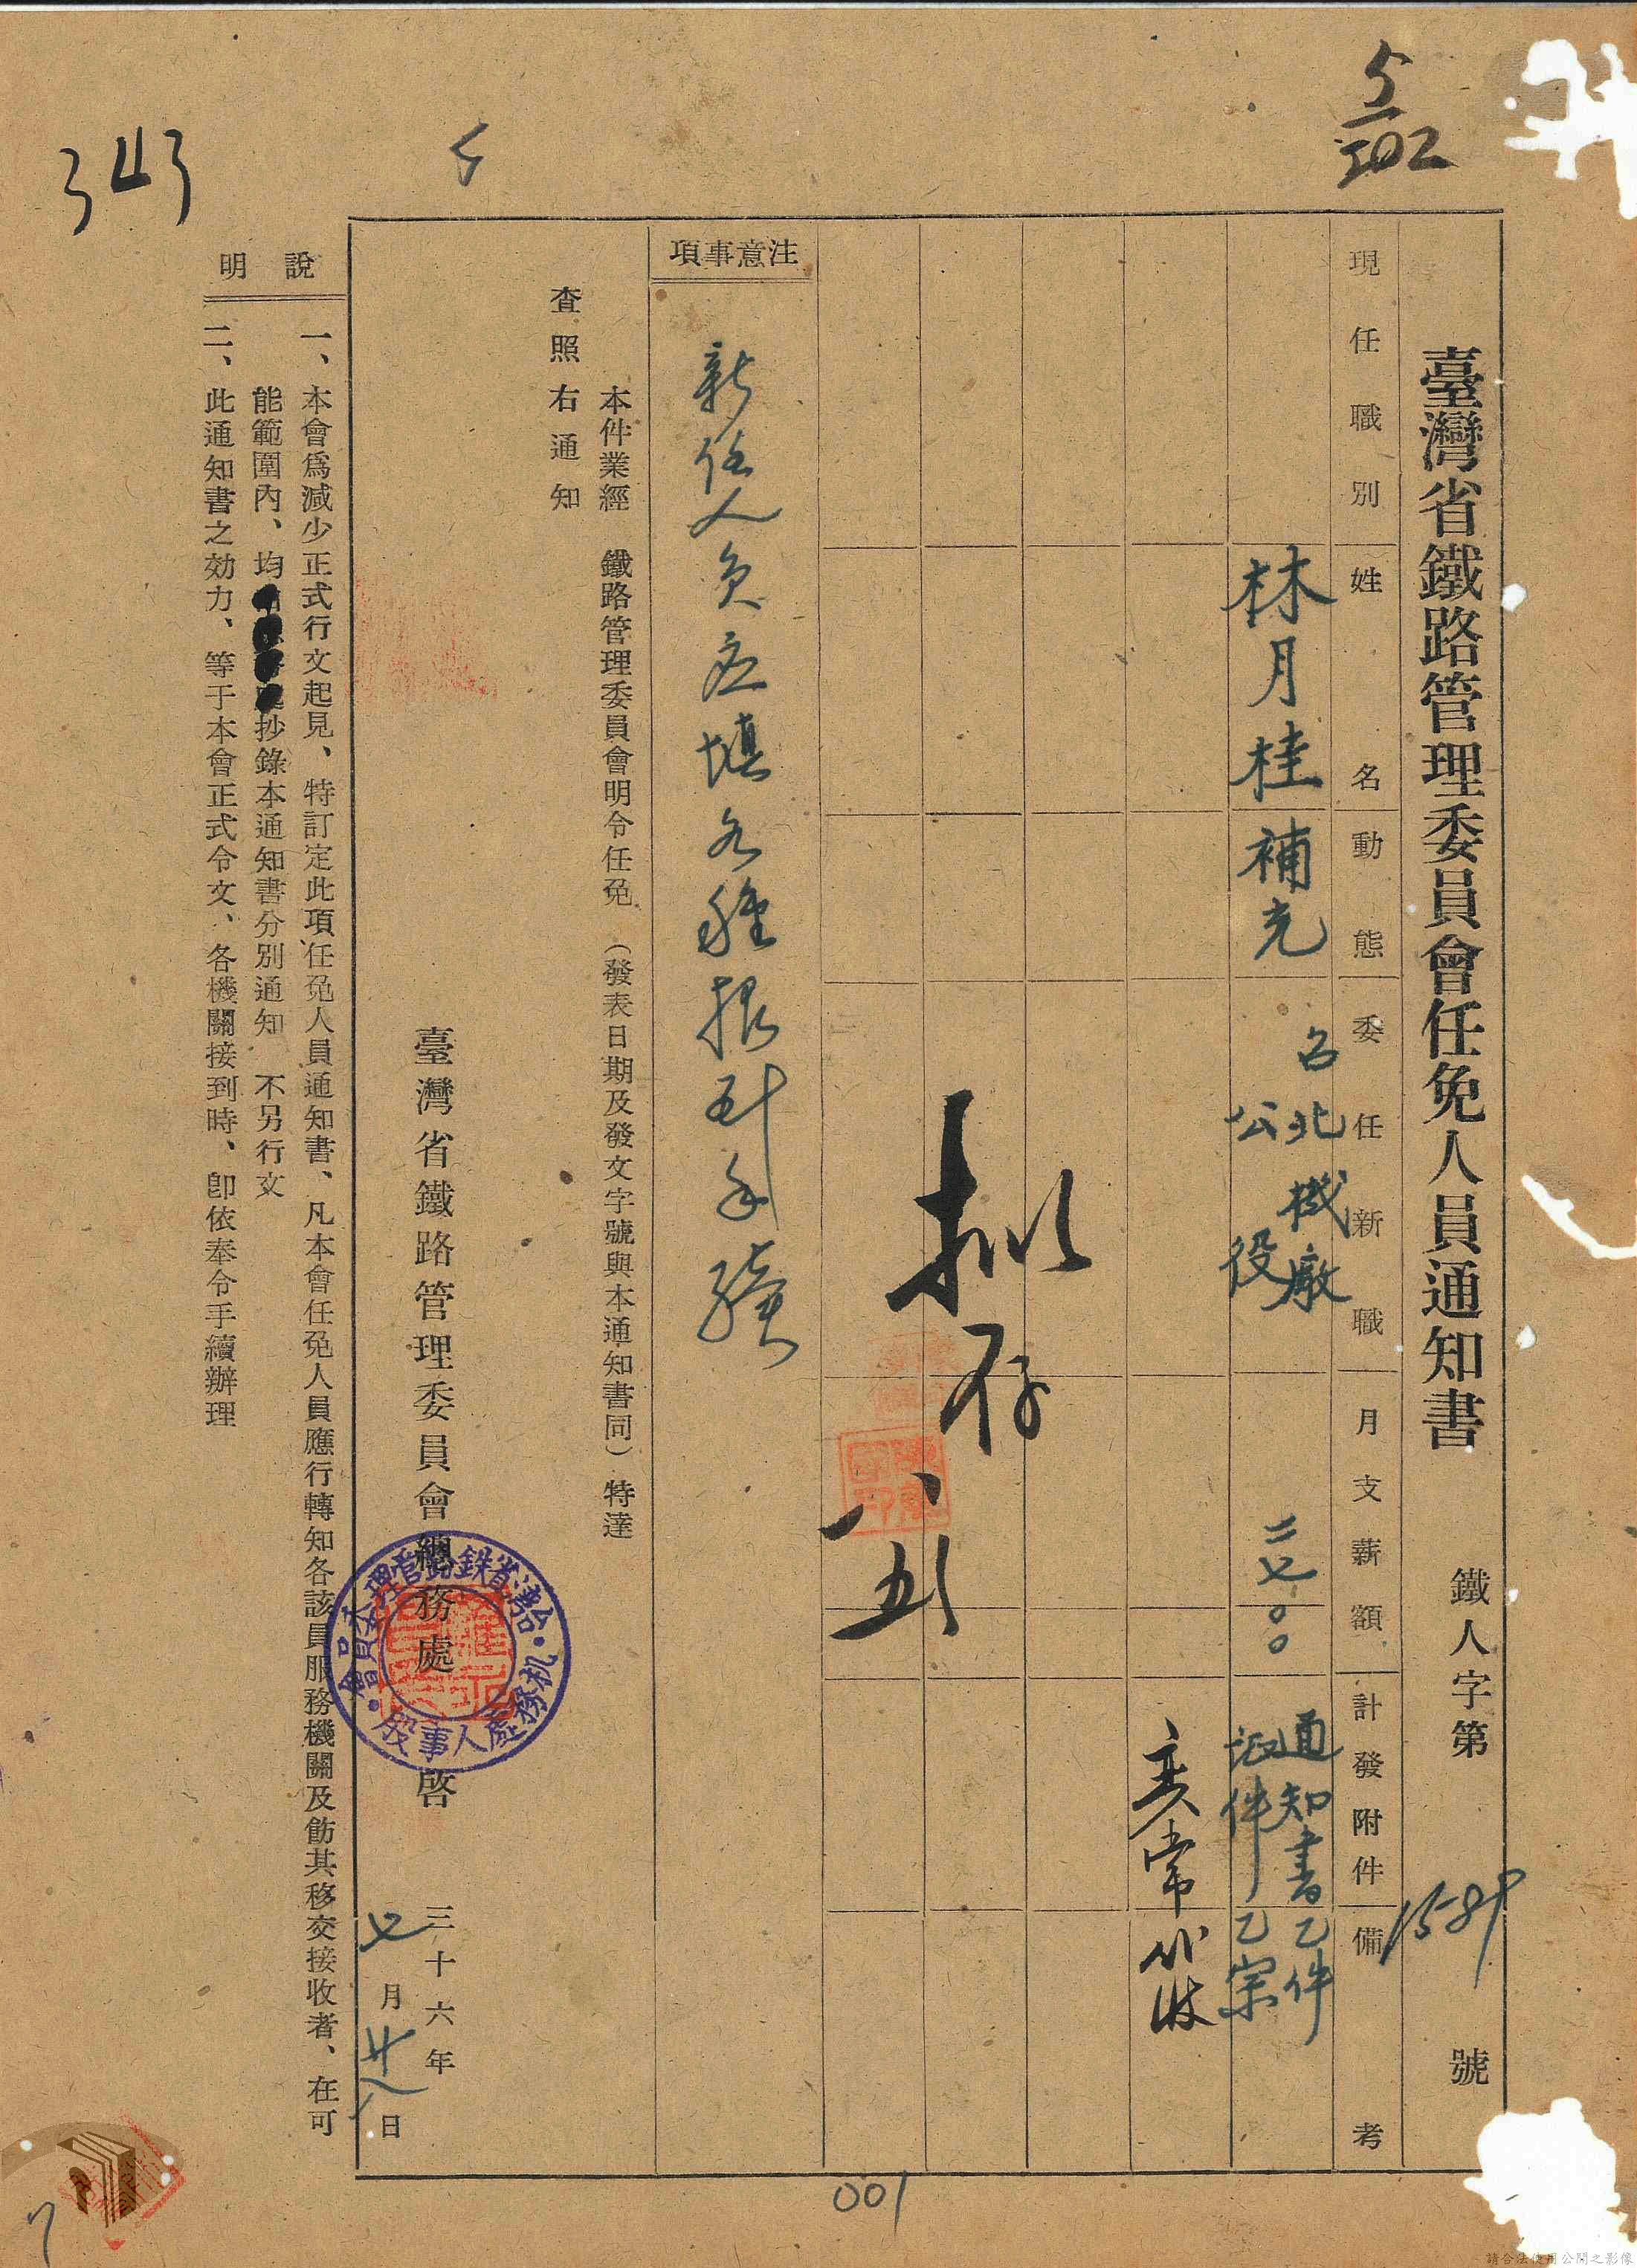 5/502
5
343
臺灣省鐵路管理委員會任免人員通知書
鐵人字第1589號
現任職別
姓名
動態
委任新職
月支薪額
計發附件
備考
林月桂
補充
台北機廠
公役
二七〇〇
通知書乙件
証件乙宗
拟存
八、五
注意事項
新任人員应填各種報計手續
本件業經 鐵路管理委員會明令任免 (發表日期及發文字號與本通知書同) 特達
查照右通知
臺灣省鐵路管理委員會總務處 啓
三十六年
七月廿八日
台灣省鉄路管理委員會
机務處人事股
說明
一、本會爲減少正式行文起見、特訂定此項任免人員通知書、凡本會任免人員應行轉知各該員服務機關及飭其移交接收者、在可
能範圍內、均抄錄本通知書分別通知 不另行文
二、此通知書之効力、等于本會正式令文、各機關接到時、卽依奉令手續辦理
001
請合法使用公開之影像